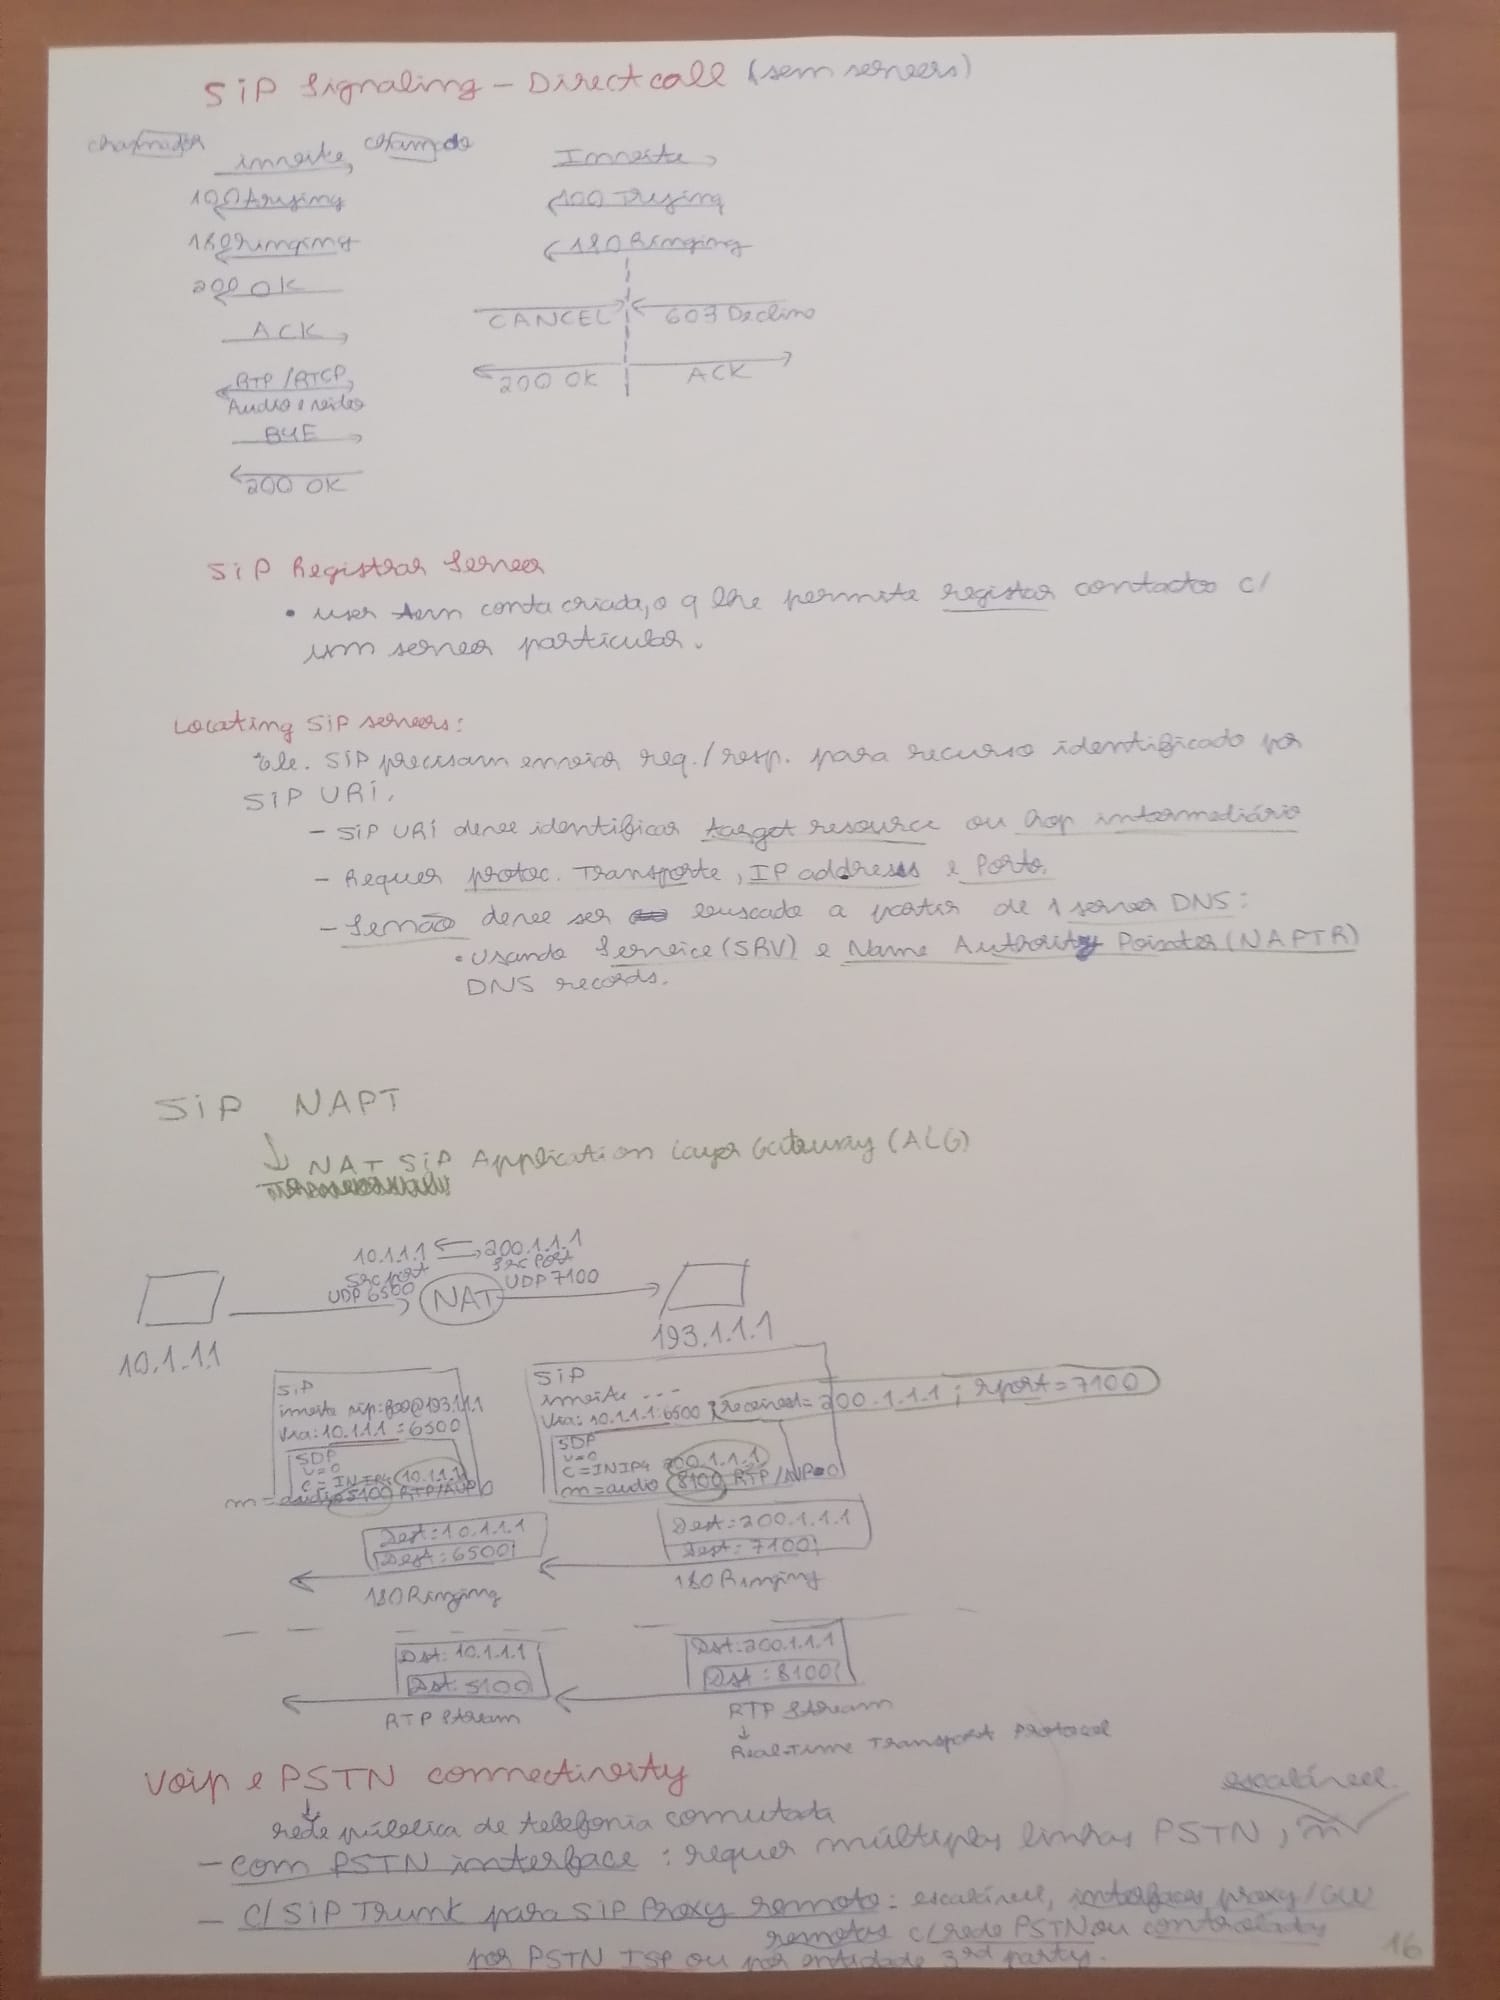 SiP Signaling - Direct call (sem servers)
chamador invite, chamado
100 trying
180 ringing
200 OK
ACK
RTP/RTCP,
Audio e video
BYE
200 OK
Invite
100 Trying
180 Ringing
CANCEL 603 Decline
200 OK ACK
SiP Registrar Server
• user tem conta criada, o q lhe permite registar contactos c/
um server particular.
Locating SiP servers:
Ele. SiP precisam enviar req./resp. para recurso identificado por
SiP URi.
- SiP URi deve identificar target resource ou hop intermediário
- Requer protoc. Transporte, IP address e Porto.
- Se não deve ser buscado a partir de 1 server DNS:
• Usando Service (SRV) e Name Authority Pointer (NAPTR)
DNS records.
SiP NAPT
↓ NAT SiP Application Layer Gateway (ALG)
10.1.1.1 200.1.1.1
Src port Src Port
UDP 6500 NAT UDP 7100
10.1.1.1 193.1.1.1
SiP
invite sip:800@193.1.1.1
Via: 10.1.1.1:6500
SDP
v=0
C=INIP4 10.1.1.1
m=audio 5100 RTP/AVP 0
SiP
invite ...
Via: 10.1.1.1:6500; received=200.1.1.1; rport=7100
SDP
v=0
C=INIP4 200.1.1.1
m=audio 8100 RTP/AVP 0
Dest:10.1.1.1 Dest:200.1.1.1
Dest:6500 Dest:7100
180 Ringing 180 Ringing
Dst: 10.1.1.1 Dst:200.1.1.1
Dst: 5100 Dst: 8100
RTP Stream RTP Stream
↓
Real-Time Transport Protocol
Voip e PSTN connectivity
↓
rede pública de telefonia comutada
escalável
- com PSTN interface: requer múltiplas linhas PSTN, ñ
- c/ SiP Trunk para SiP Proxy remoto: escalável, interfaces proxy/GW
remotos c/ rede PSTN ou controlados
por PSTN ISP ou por entidade 3rd party.
16